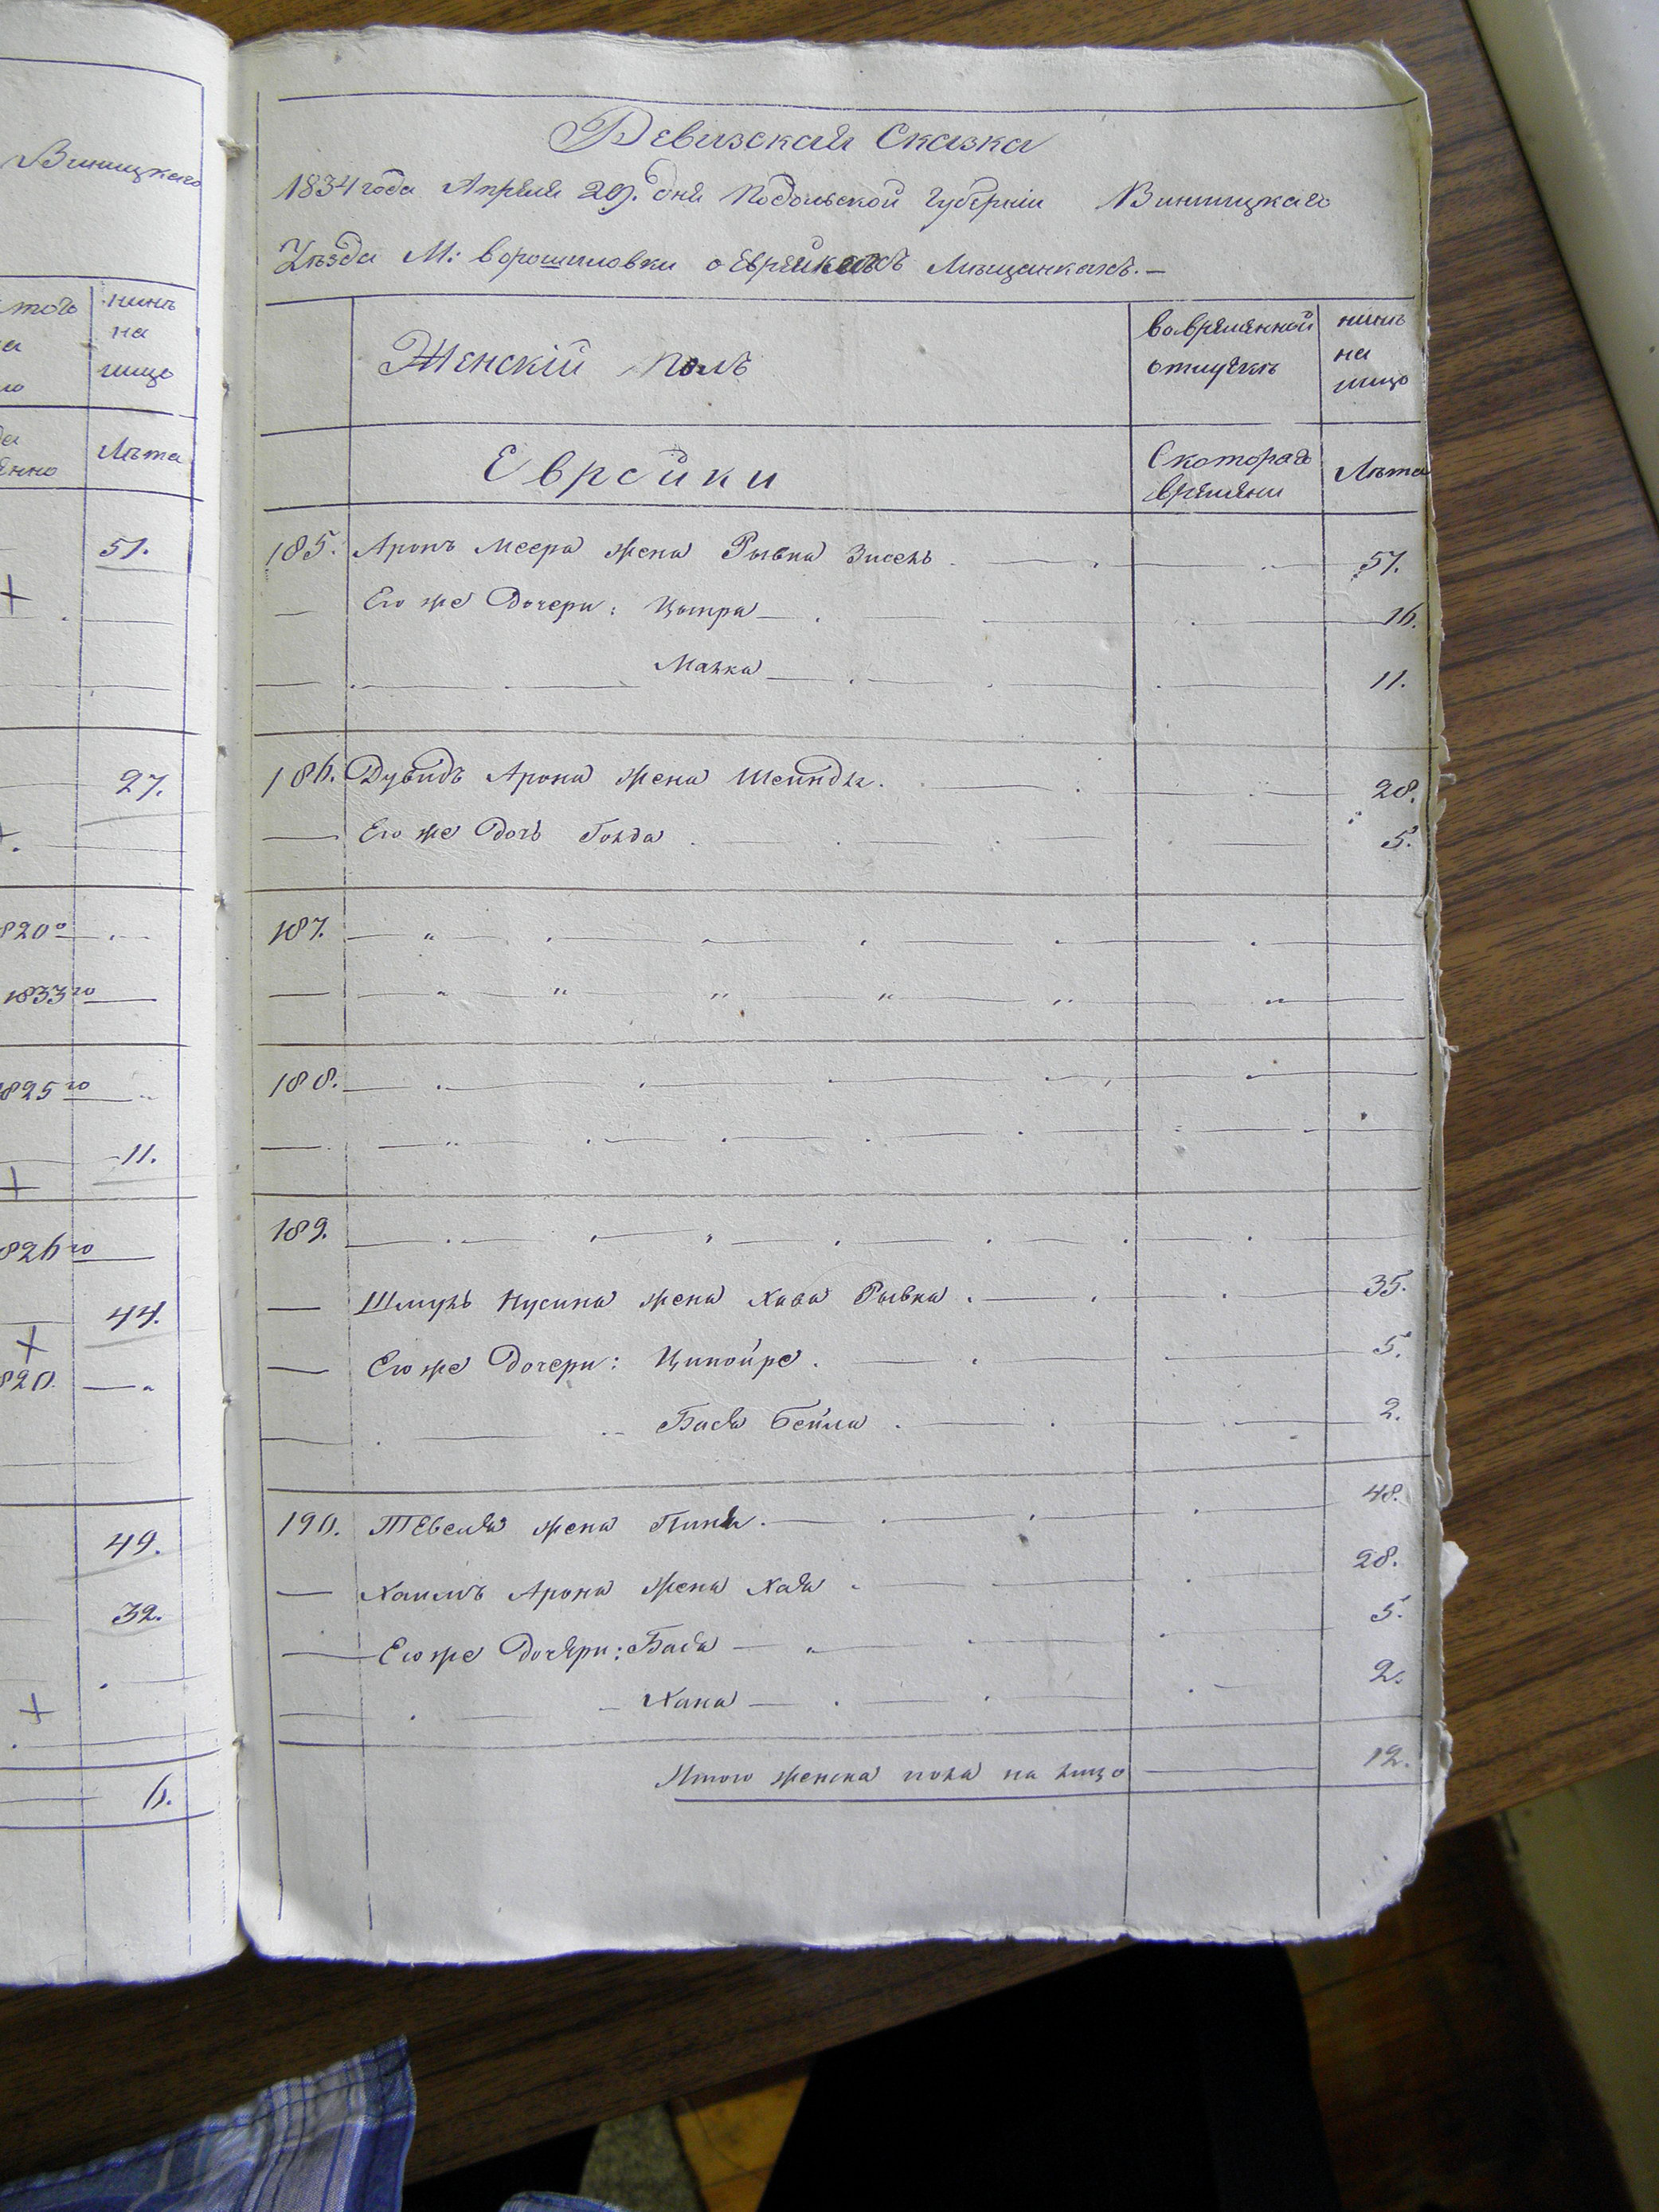 Винницкаго
нинѣ
на
лицо
Лѣта
51.
27.
820º
1833го
1825го
11.
826го
44.
820.
49.
32.
6.
Ревизская Сказка
1834 года Апреля 29. дня Подольской Губерніи Винницкаго
Уѣзда М: Ворошиловки о Еврейкахъ Мѣщанкахъ.—
Женскій Полъ
во временной отлучкѣ
нинѣ на лицо
Еврейки
С котораго времени
Лѣта
185. Аронъ Меера жена Рывка Зисель 57.
— Его же Дочери: Цыпра 16.
— Малка 11.
186. Дувидъ Арона жена Шейндля. 28.
— Его же Дочь Голда 5.
187.
188.
189.
— Шмуль Нусина жена Хава Рывка. 35.
— Его же Дочери: Ципойре. 5.
Бася Бейла 2.
190. Тевеля жена Пиня. 48.
— Хаимъ Арона жена Хая 28.
— Его же Дочери: Бася 5.
Хана 2.
Итого женска пола на лицо 12.